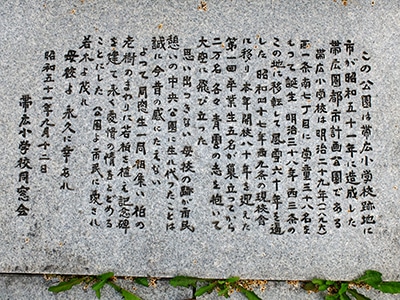 この公園は帯広小学校跡地に
市が昭和五十一年に造成した
帯広圏都市計画公園である
帯広小学校は明治二十九年(一八九六)
西一条南七丁目に学童三十八名を
もって誕生 明治三十八年西三条の
この地に移転して風雪六十年を過
した 昭和四十七年西八条の現校舎
に移り 本年開校八十年を迎えた
第一回卒業生五名が巣立ってから
二万有名 各々青雲の志を抱いて
大空に飛び立った
思い出つきない母校の跡が市民
憩いの中央公園に生れ代ったことは
誠に今昔の感にたえない
よつて 同窓生一同相集い 柏の
老樹のまわりに若柏を植え 記念碑
を建て 永く愛情の情をとどめる
ことにした 公園よ 市民に愛され
若木よ 茂れ
母校よ 永久に幸あれ
昭和五十一年九月十二日
帯広小学校同窓会